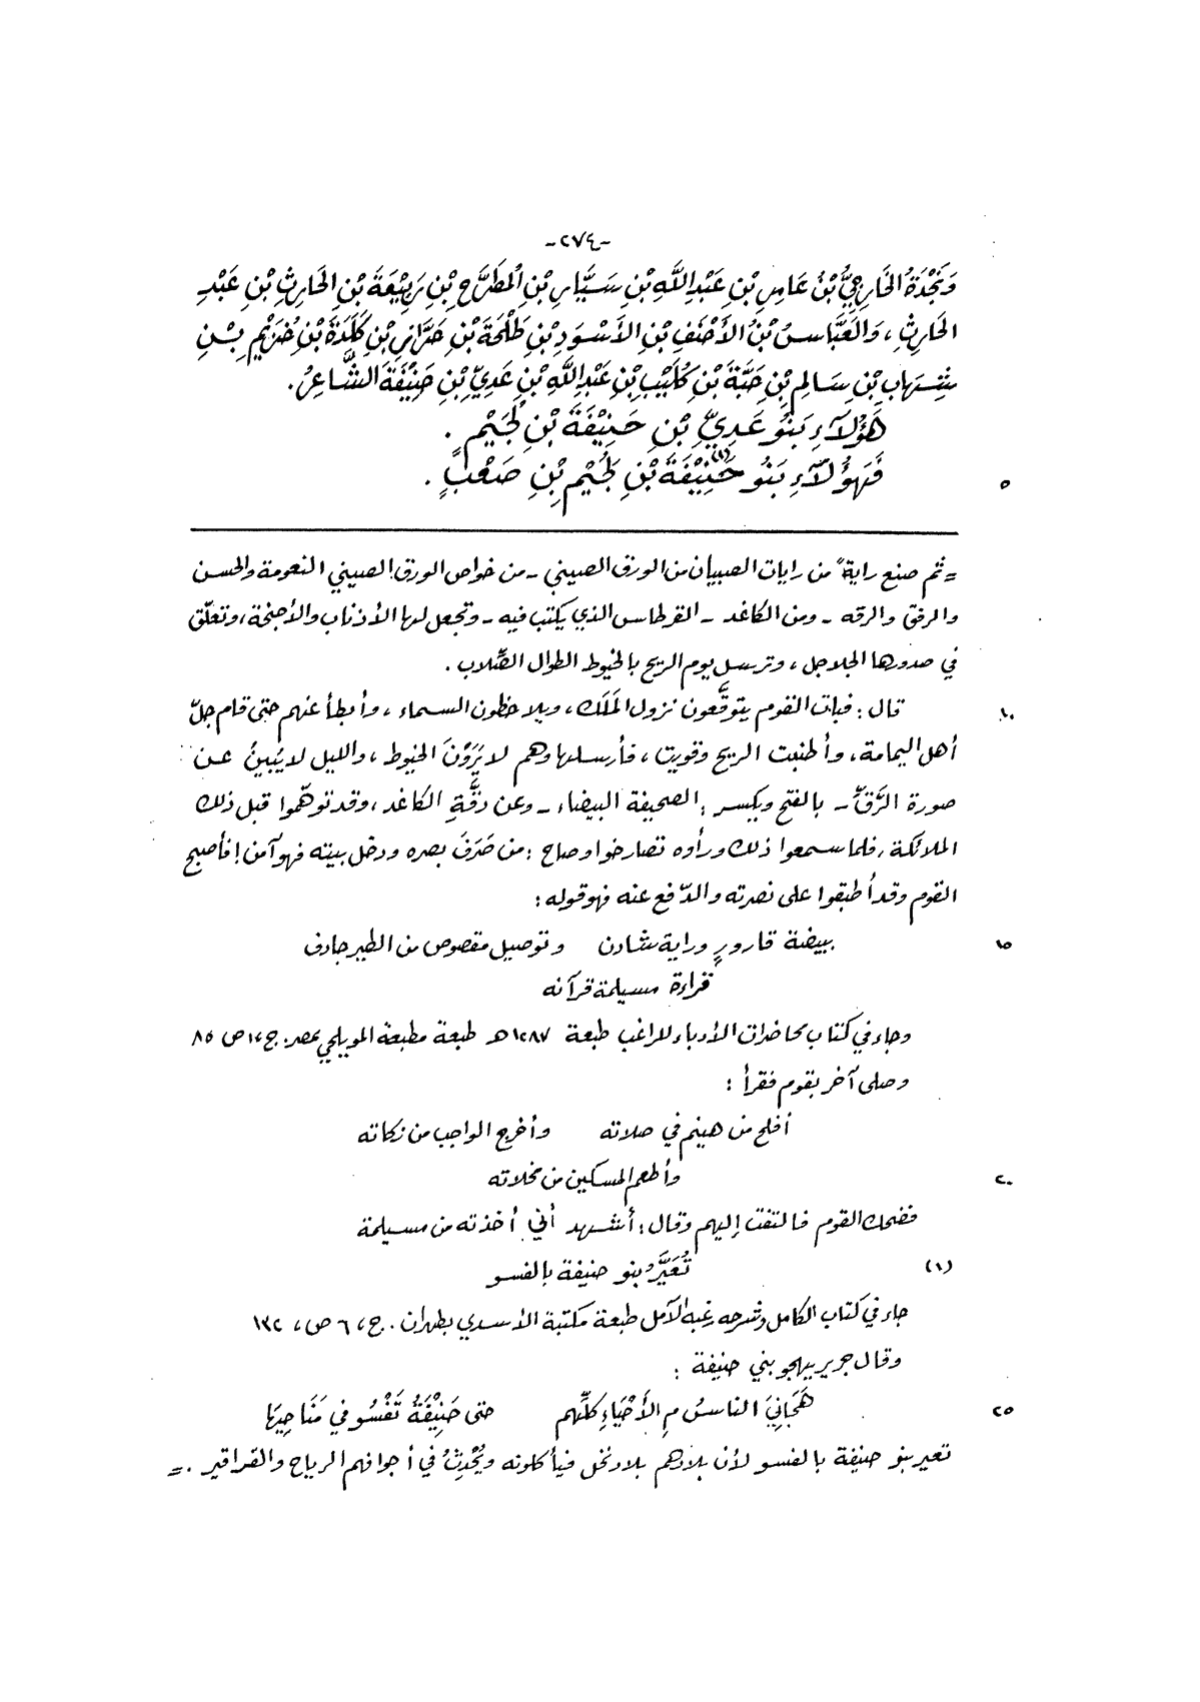 -٢٧٤-
وَنَجْدَةُ الخَارِجِيُّ بْنُ عَامِرِ بْنِ عَبْدِ اللَّهِ بْنِ سَيَّارِ بْنِ المُطَرَّحِ بْنِ رَبِيْعَةَ بْنِ الحَارِثِ بْنِ عَبْدِ
الحَارِثِ، وَالعَبَّاسُ بْنُ الأَحْنَفِ بْنِ الأَسْوَدِ بْنِ طَلْحَةَ بْنِ حَرَّازِ بْنِ كَلَدَةَ بْنِ خُزَيْمِ بْنِ
شِهَابِ بْنِ سَالِمِ بْنِ حَبَّةَ بْنِ كُلَيْبِ بْنِ عَبْدِ اللَّهِ بْنِ عَدِيِّ بْنِ حَنِيْفَةَ الشَّاعِرُ.
هَؤُلَاءِ بَنُو عَدِيِّ بْنِ حَنِيْفَةَ بْنِ لُجَيْمٍ.
٥ فَهَؤُلَاءِ بَنُو حَنِيْفَةَ(١) بْنِ لُجَيْمِ بْنِ صَعْبٍ.
= ثم صنع رايةً من رايات الصبيان من الورق الصيني - من خواص الورق الصيني النعومة والحسن
والرفق والرقه - ومن الكاغد - القرطاس الذي يكتب فيه - وتجعل لها الأذناب والأجنحة، وتعلّق
في صدورها الجلاجل، وترسل يوم الريح بالخيوط الطوال الصِّلاب.
١٠ قال: فبات القوم يتوقَّعون نزول المَلَك، ويلاحظون السماء، وأبطأ عنهم حتى قام جلّ
أهل اليمامة، وأطنبت الريح وقويت، فأرسلها وهم لا يَرَوْنَ الخيوط، والليل لا يُبينُ عن
صورة الرَّقّ - بالفتح ويكسر: الصحيفة البيضاء - وعن دقَّةِ الكاغد، وقد توهّموا قبل ذلك
الملائكة، فلما سمعوا ذلك ورأوه تصارخوا وصاح: من صَرَفَ بصره ودخل بيته فهو آمن! فأصبح
القوم وقد أطبقوا على نصرته والدّفع عنه فهو قوله:
١٥ ببيضة قارورٍ وراية شادن وتوصيل مقصوص من الطير جادف
قراءة مسيلمة قرآنه
وجاء في كتاب محاضرات الأدباء للراغب طبعة ١٢٨٧ هـ طبعة مطبعة المويلحي بمصر: ج، ١ ص ٨٥
وصلى آخر بقوم فقرأ:
أفلح من هينم في صلاته وأخرج الواجب من زكاته
٢٠ وأطعم المسكين من مخلاته
فضحك القوم فالتفت إليهم وقال: أشهد أني أخذته من مسيلمة
(١) تُعَيَّر بنو حنيفة بالفسو
جاء في كتاب الكامل وشرحه رغبه الآمل طبعة مكتبة الأسدي بطهران. ج، ٦ ص، ١٣٢
وقال جرير يهجو بني حنيفة:
٢٥ هَجَانِيَ الناسُ مِ الأَحْيَاءِ كلِّهم حتى حَنِيْفَةُ تَفْسُو في مَنَاحِيهَا
تعير بنو حنيفة بالفسو لأن بلادهم بلاد نخل فيأكلونه ويُحْدِثُ في أجوافهم الرياح والقراقير. =